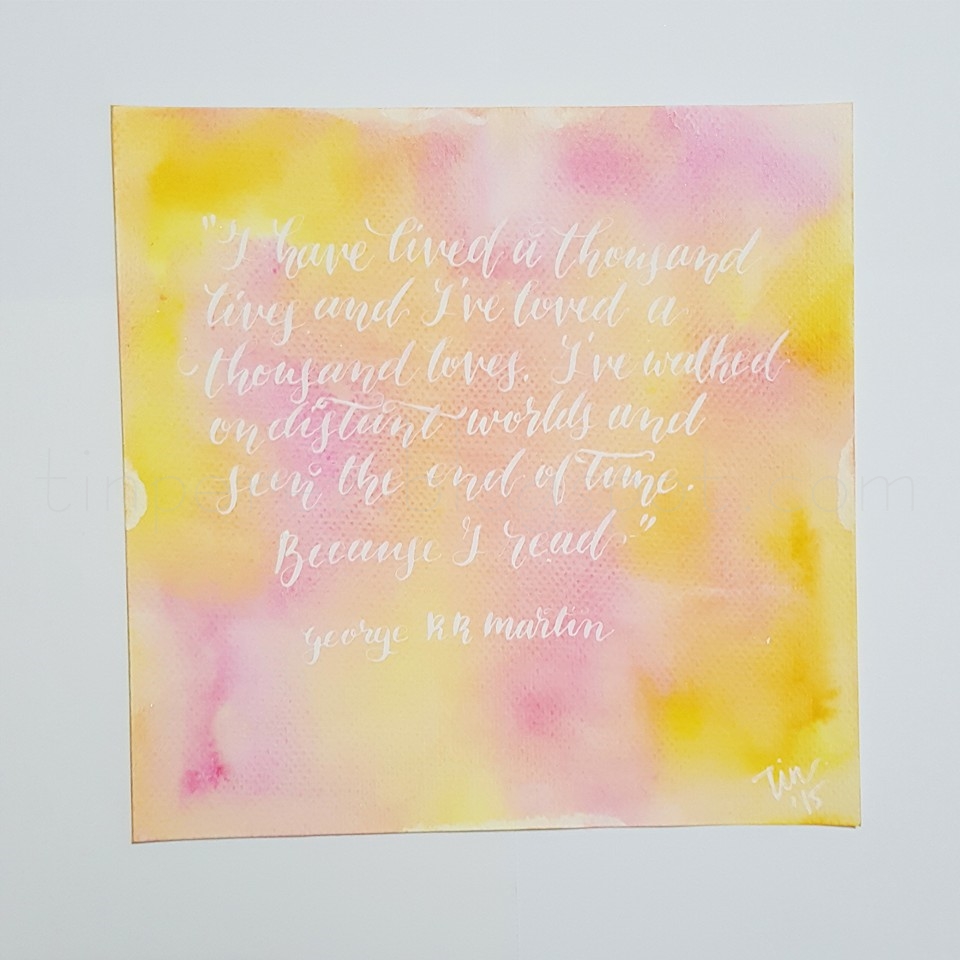 "I have lived a thousand
lives and I've loved a
thousand loves. I've walked
on distant worlds and
seen the end of time.
Because I read."
george RR martin
Tin
'15